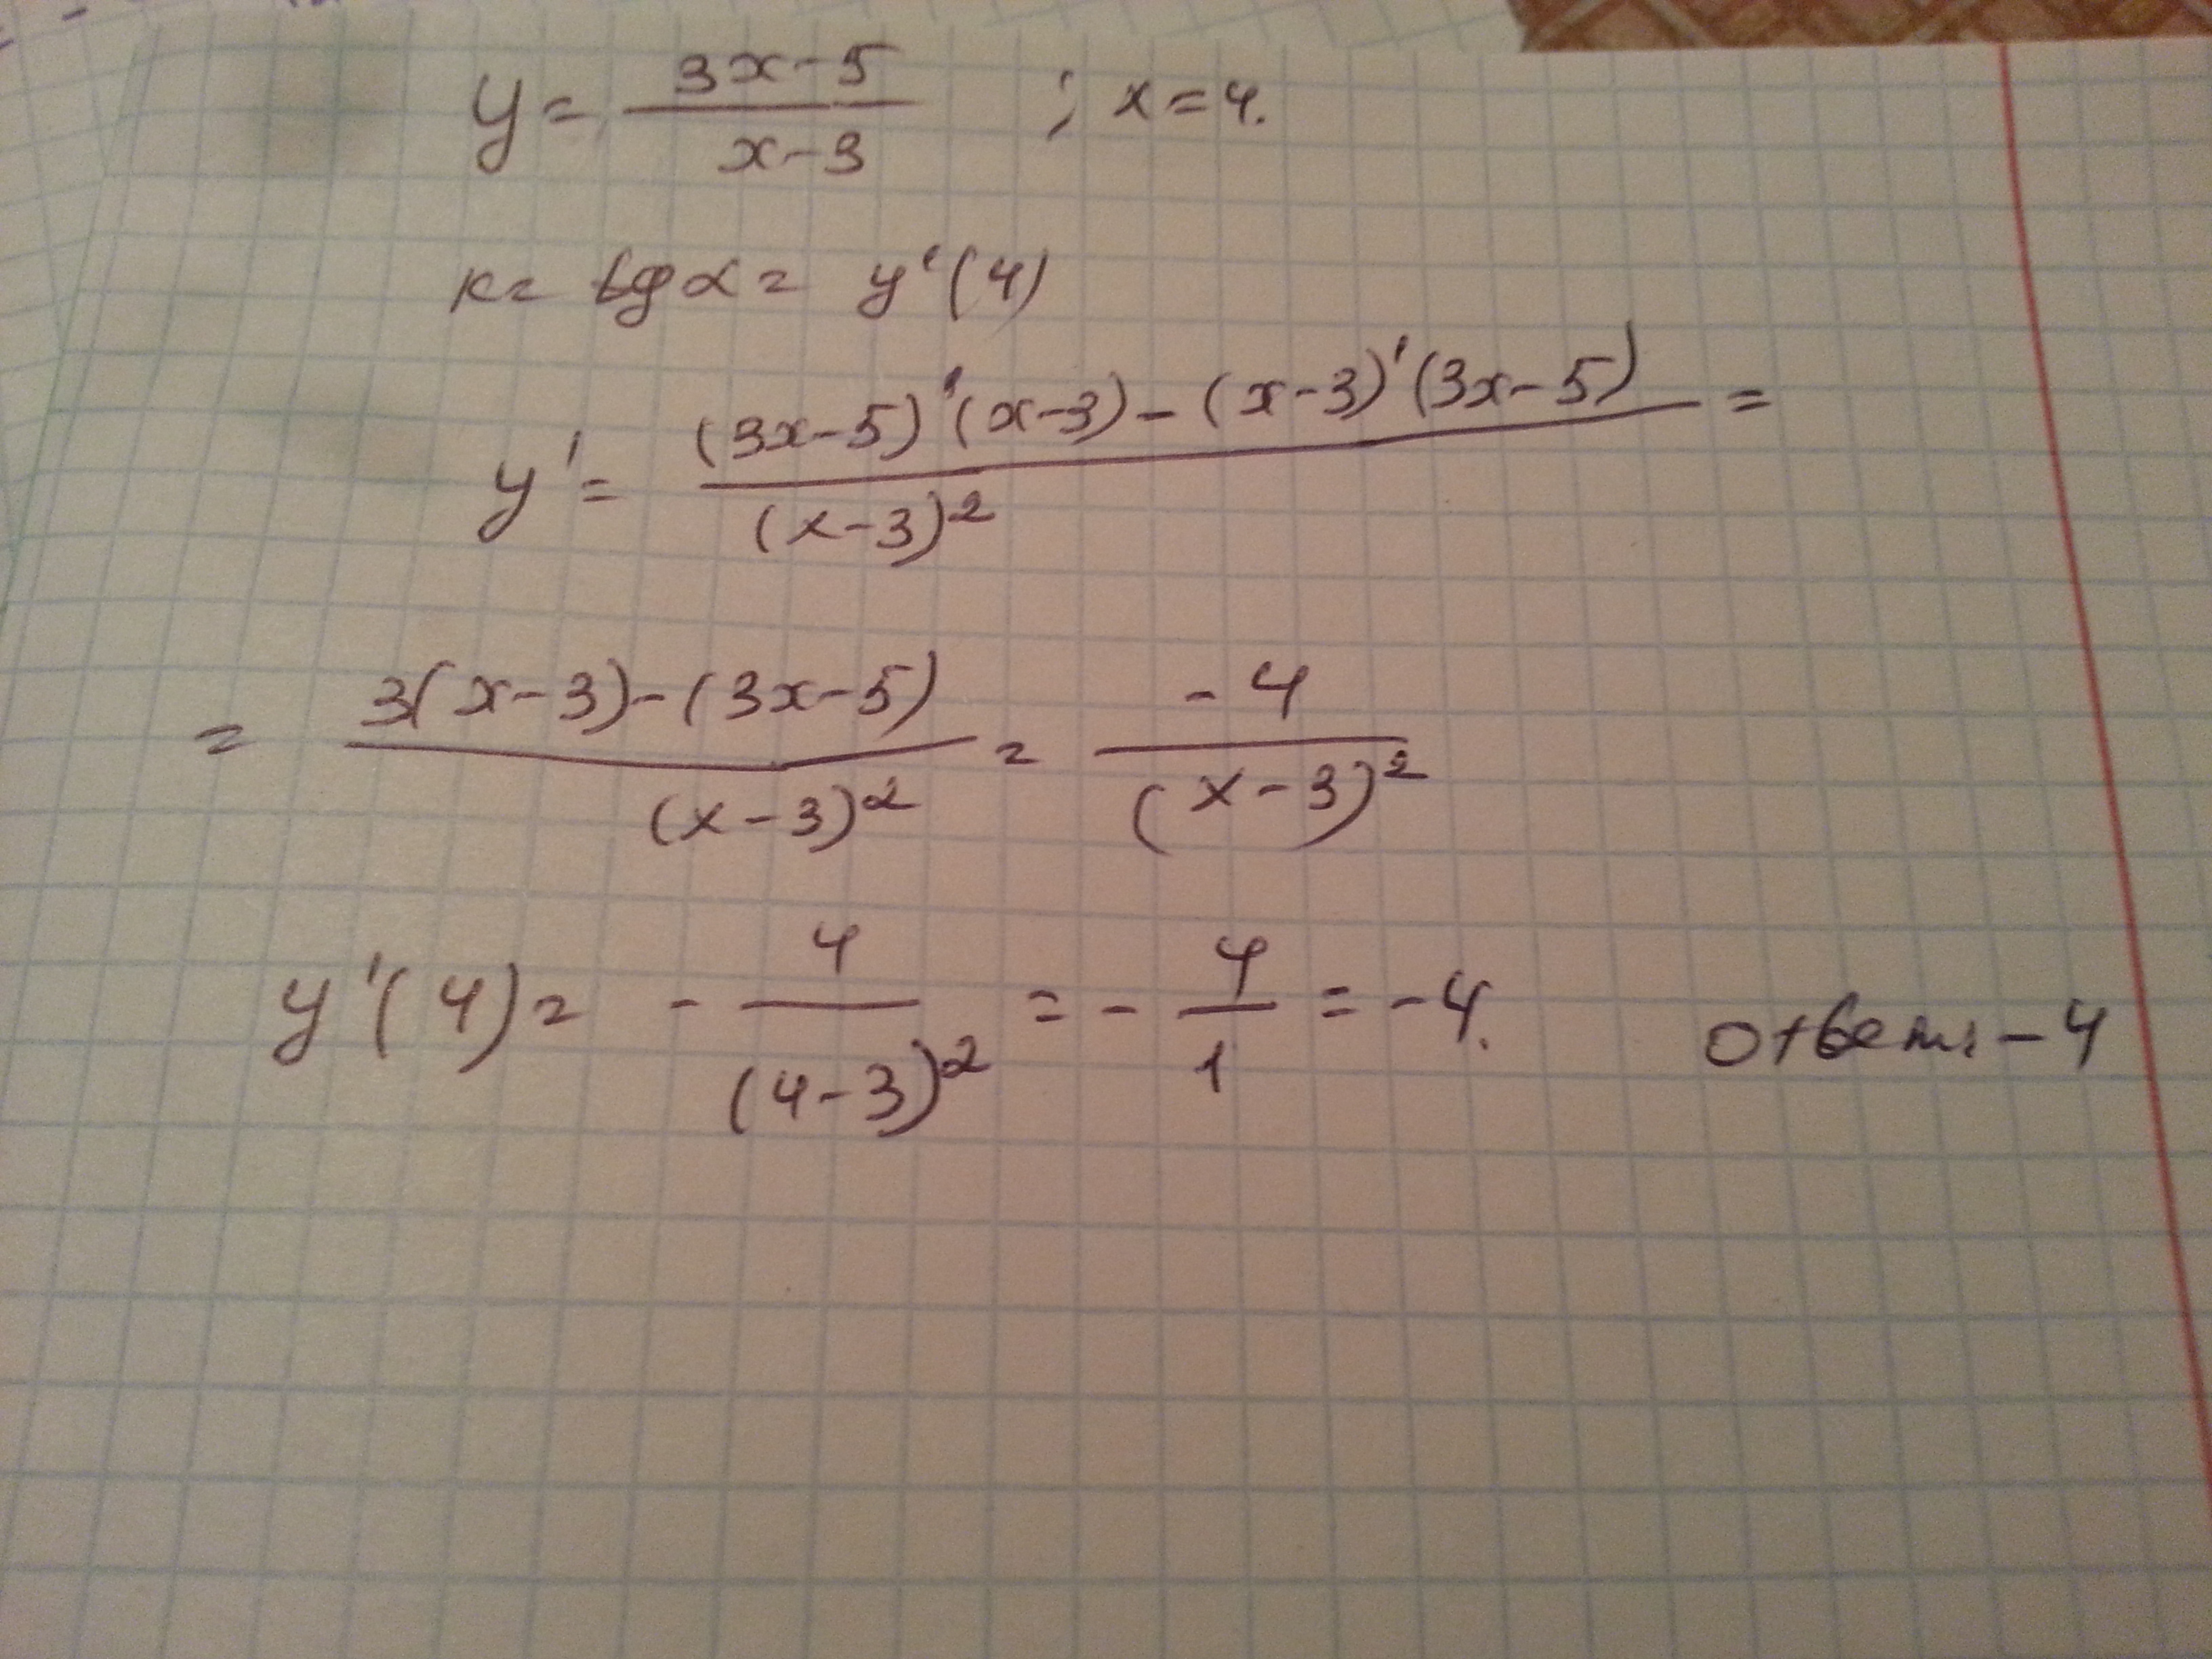 y = (3x-5)/(x-3) ; x=4.
k = tg α = y'(4)
y' = ((3x-5)'(x-3)-(x-3)'(3x-5))/(x-3)² =
= (3(x-3)-(3x-5))/(x-3)² = -4/(x-3)²
y'(4) = - 4/(4-3)² = - 4/1 = -4. Ответ: -4